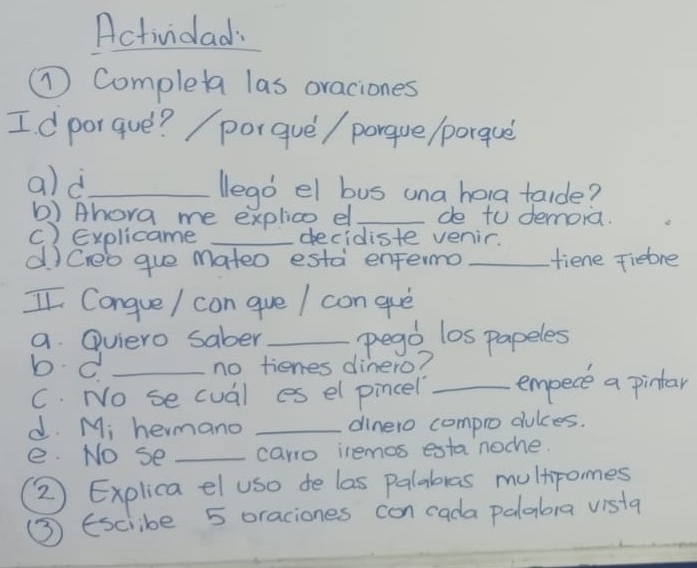 Actividad:
① Completa las oraciones
I. ¿por qué? / por qué / porque / porqué
a) ¿______ llegó el bus una hora tarde?
b) Ahora me explico el ____ de tu demora.
c) Explícame _____ decidiste venir.
d) Creo que Mateo está enfermo _____ tiene fiebre
II Conque / con que / con qué
a. Quiero saber _____ pegó los papeles
b. ¿ ______ no tienes dinero?
c. No se cuál es el pincel _____ empecé a pintar
d. Mi hermano _____ dinero compro dulces.
e. No se ____ carro iremos esta noche.
② Explica el uso de las palabras multiformes
③ Escribe 5 oraciones con cada palabra vista